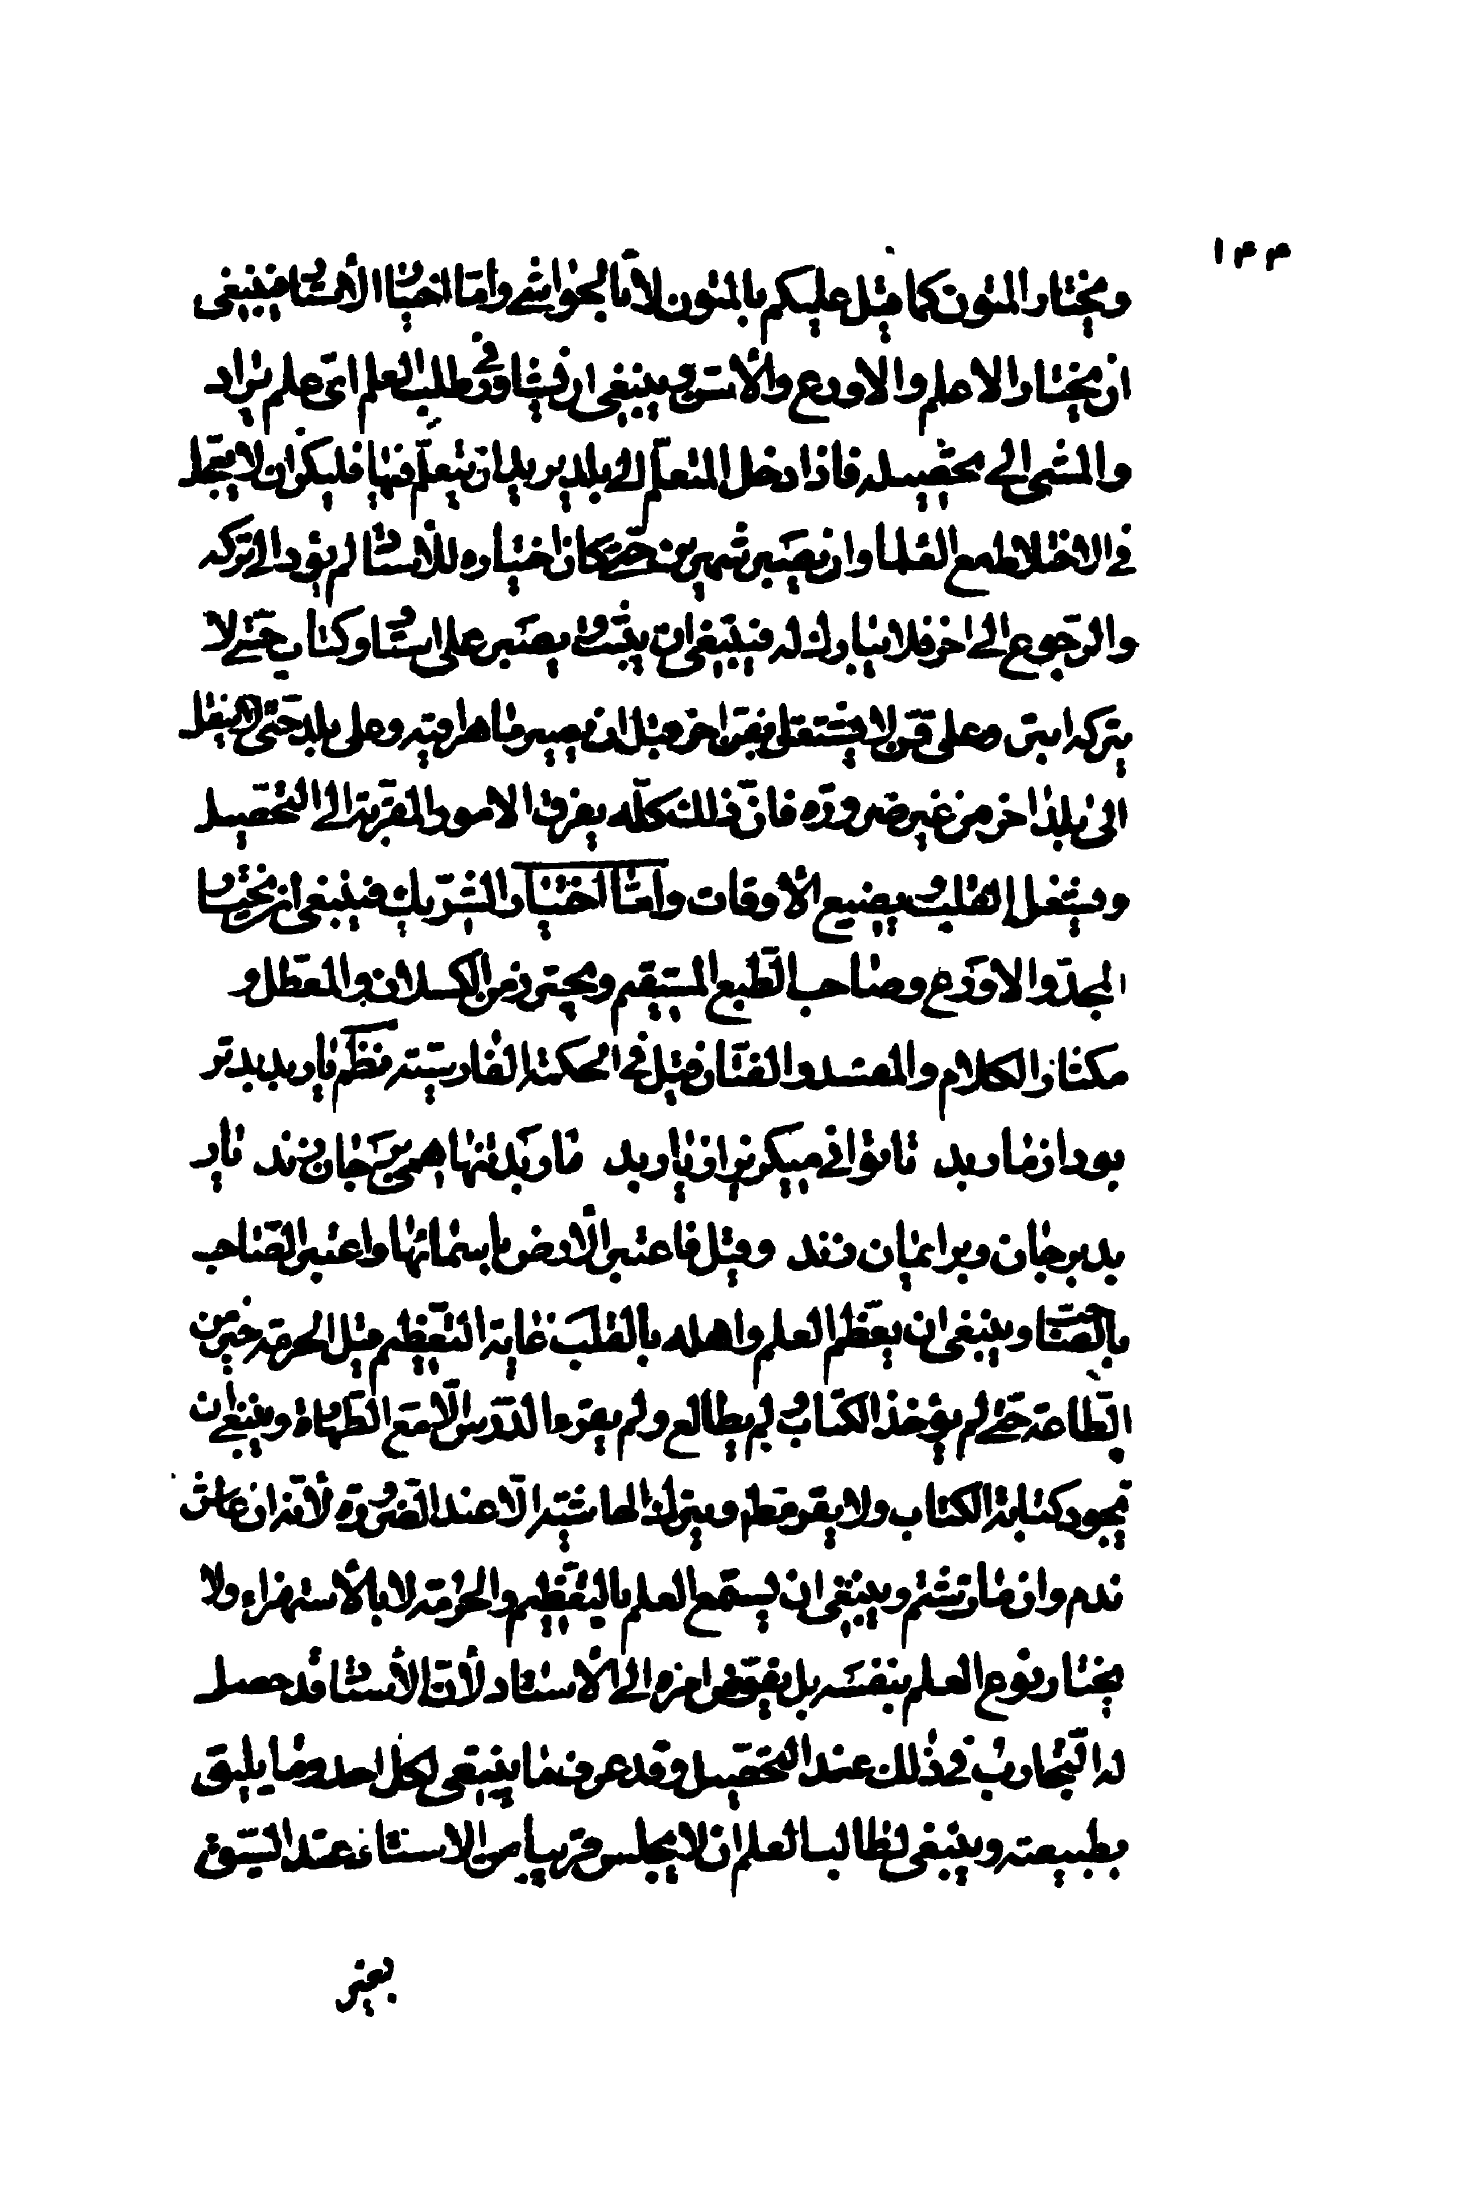 ١٣٣
ويختار المتون كما قيل عليكم بالمتون لا بالحواشي وامّا اختيار الأستاد فينبغي
ان يختار الاعلم والاورع والأسن وينبغي ان يشاور في طلب العلم اىّ علم يراد
والمشي الى تحصيله فاذا دخل المتعلّم الى بلد يريد ان يتعلّم فيها فليكن ان لا يعجل
في الاختلاط مع العلما وان يصبر شهرين حتى كان اختياره للأستاد لم يؤد الى تركه
والرجوع الى اخر فلا يبارك له فينبغي ان يثبت ويصبر على استاد وكتاب حتى لا
يتركه ابتر وعلى فن لا يشتغل بفن اخر قبل ان يصير ماهرا فيه وعلى بلد حتى لا ينقل
الى بلد اخر من غير ضرورة فانّ ذلك كلّه يفرق الامور المقربة الى التحصيل
ويشغل القلب ويضيع الأوقات وامّا اختيار الشريك فينبغي ان يختار
المجدّ والاورع وصاحب الطّبع المستقيم ويحترز من الكسلان والمعطّل و
مكثار الكلام والمفسد والفتّان قيل في الحكمة الفارسيّة نظم يار بد بدتر
بود از مار بد تا توانى ميكريز از يار بد مار بد تنها همى بر جان زند يار
بد بر جان وبر ايمان زند وقيل فاعتبر الأرض باسمائها واعتبر الصّاحب
بالصّاحب وينبغي ان يعظّم العلم واهله بالقلب غاية التّعظيم قيل الحرمة خير من
الطّاعة حتى لم يؤخذ الكتاب ولم يطالع ولم يقرء الدّرس الّا مع الطّهارة وينبغي ان
يجود كتابة الكتاب ولا يقرمط ويترك الحاشية الّا عند الضّرورة لأنّه ان عاش
ندم وان مات شتم وينبغي ان يستمع العلم بالتّعظيم والحرمة لا بالأستهزاء ولا
يختار نوع العلم بنفسه بل يفوّض امره الى الأستاد لأنّ الأستاد قد حصل
له التّجارب في ذلك عند التّحصيل وقد عرف ما ينبغي لكلّ احد وما يليق
بطبيعته وينبغي لطالب العلم ان لا يجلس قريبا من الاستاذ عند السّبق
بغير